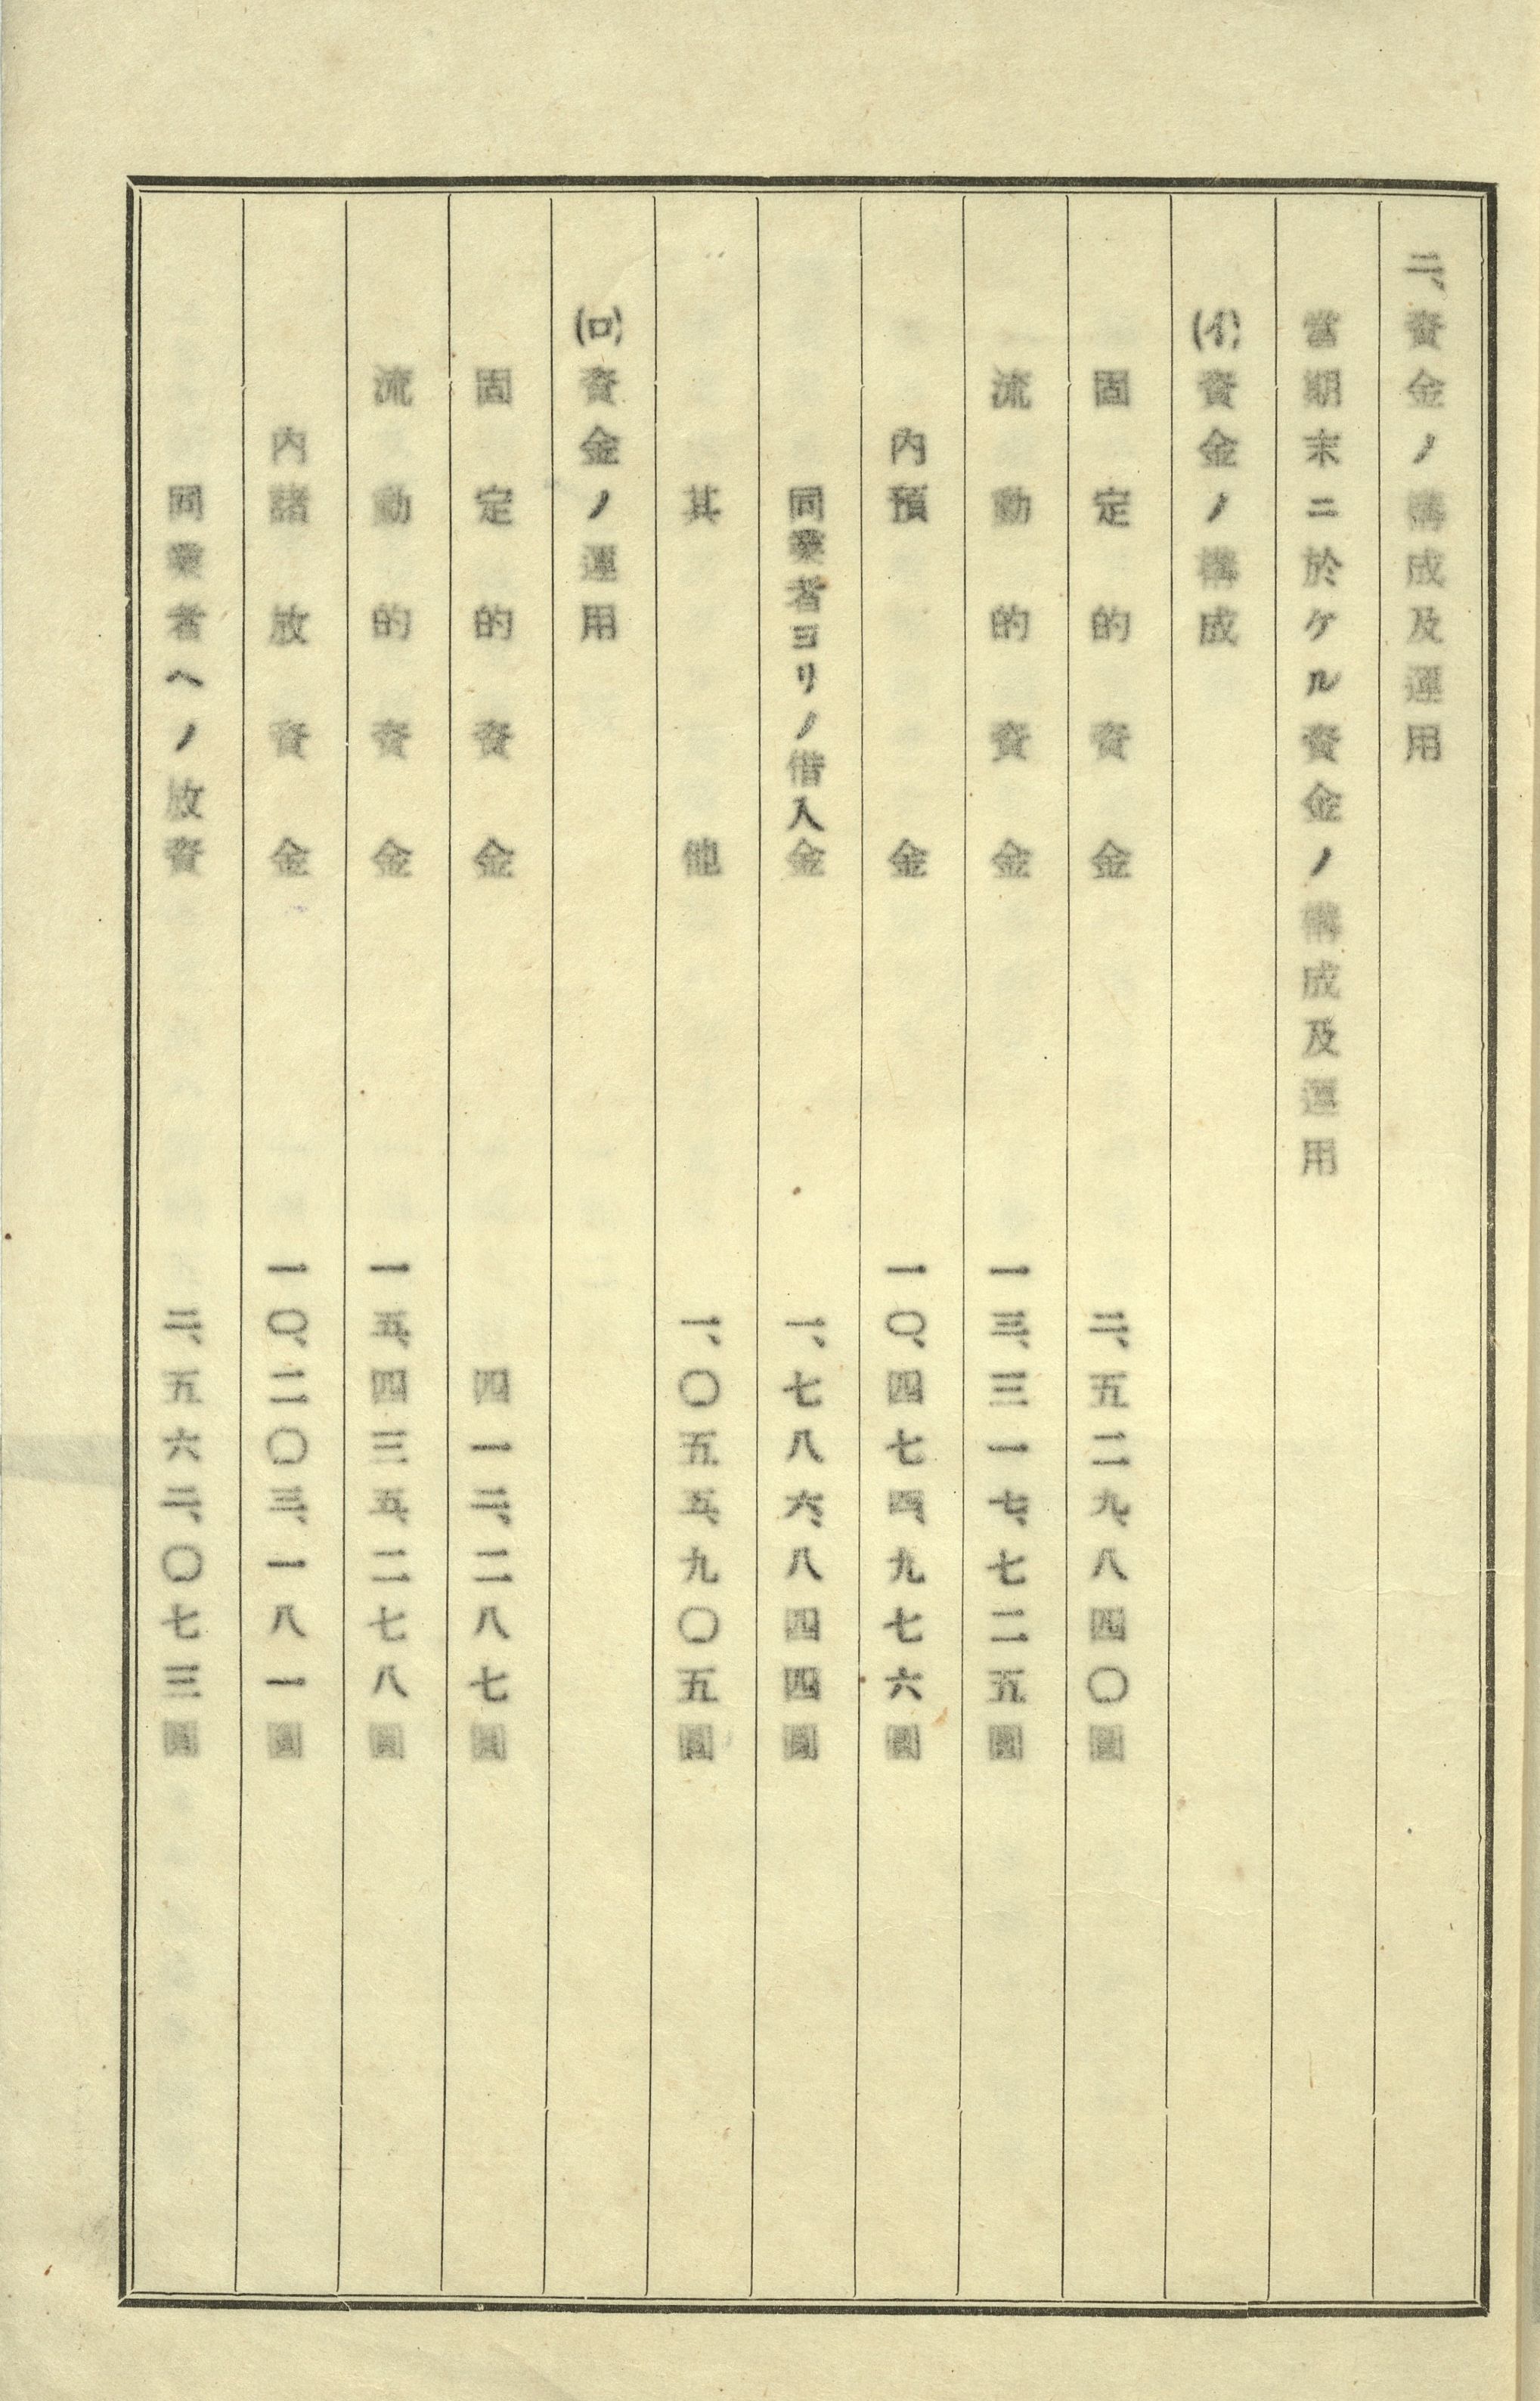 二、資金ノ構成及運用
當期末ニ於ケル資金ノ構成及運用
(イ)資金ノ構成
固定的資金 二、五二九、八四〇圓
流動的資金 一三、三一七、七二五圓
内預金 一〇、四七四、九七六圓
同業者ヨリノ借入金 一、七八六、八四四圓
其他 一、〇五五、九〇五圓
(ロ)資金ノ運用
固定的資金 四一二、二八七圓
流動的資金 一五、四三五、二七八圓
内諸放資金 一〇、二〇三、一八一圓
同業者ヘノ放資 二、五六二、〇七三圓